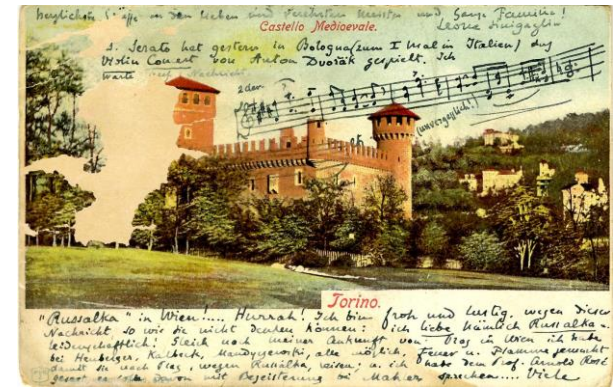 herzlichste Grüsse an den lieben und verehrten Meister und Ganze Familie!
Leone Sinigaglia
Castello Medioevale.
S. Serato hat gestern in Bologna (zum I mal in Italien) das
Violin Concert von Anton Dvořák gespielt. Ich
warte Nachricht.
(unvergesslich!)
Torino.
"Russalka" in Wien!.... Hurrah! Ich bin froh und lustig. wegen dieser
Nachricht, so wie Sie nicht denken können: ich liebe nämlich Russalka -
leidenschaftlich! Gleich nach meiner Ankunft von Prag in Wien ich habe
bei Heuberger, Kalbeck, Mandyczewski, alle möglich, Feuer u. Flamme gemacht
damit sie nach Prag, wegen Russalka, reisen; u. ich habe dem Prof. Arnold Rosé
davon mit Begeisterung bei Mahler sprechen... Viele